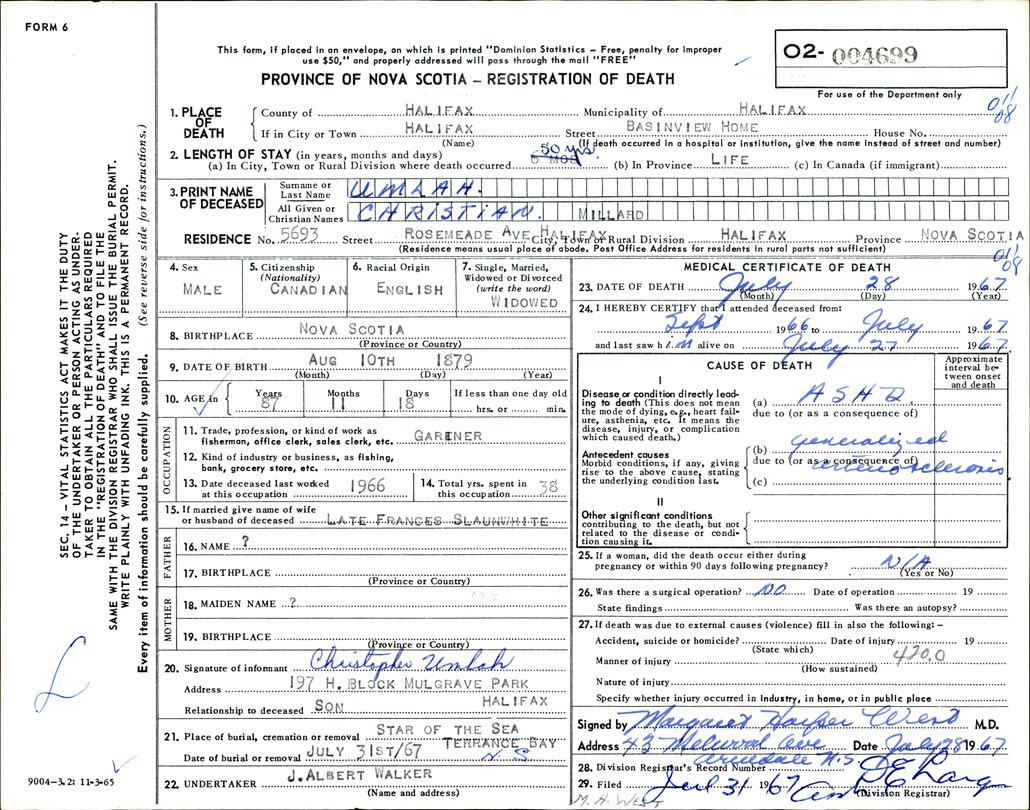 FORM 6
This form, if placed in an envelope, on which is printed "Dominion Statistics – Free, penalty for improper
use $50," and properly addressed will pass through the mail "FREE"
PROVINCE OF NOVA SCOTIA – REGISTRATION OF DEATH
O2- 004699
For use of the Department only
011/08
1. PLACE OF DEATH
County of HALIFAX Municipality of HALIFAX
If in City or Town HALIFAX Street BASINVIEW HOME House No.
(Name) (If death occurred in a hospital or institution, give the name instead of street and number)
2. LENGTH OF STAY (in years, months and days)
(a) In City, Town or Rural Division where death occurred 50 yrs. (b) In Province LIFE (c) In Canada (if immigrant)
3. PRINT NAME OF DECEASED
Surname or Last Name UMLAH.
All Given or Christian Names CHRISTIAN. MILLARD
RESIDENCE No. 5693 Street ROSEMEADE AVE HALIFAX City, Town or Rural Division HALIFAX Province NOVA SCOTIA
(Residence means usual place of abode. Post Office Address for residents in rural parts not sufficient)
011/08
4. Sex MALE
5. Citizenship (Nationality) CANADIAN
6. Racial Origin ENGLISH
7. Single, Married, Widowed or Divorced (write the word) WIDOWED
8. BIRTHPLACE NOVA SCOTIA
(Province or Country)
9. DATE OF BIRTH AUG 10TH 1879
(Month) (Day) (Year)
10. AGE in Years 87 Months 11 Days 18 If less than one day old hrs. or min.
OCCUPATION
11. Trade, profession, or kind of work as fisherman, office clerk, sales clerk, etc. GARENER
12. Kind of industry or business, as fishing, bank, grocery store, etc.
13. Date deceased last worked at this occupation 1966
14. Total yrs. spent in this occupation 38
15. If married give name of wife or husband of deceased LATE FRANCES SLAUNWHITE
FATHER
16. NAME ?
17. BIRTHPLACE
(Province or Country)
MOTHER
18. MAIDEN NAME ?
19. BIRTHPLACE
(Province or Country)
20. Signature of informant Christopher Umlah
Address 197 H. BLOCK MULGRAVE PARK
HALIFAX
Relationship to deceased SON
21. Place of burial, cremation or removal STAR OF THE SEA
TERRANCE BAY
Date of burial or removal JULY 31ST/67 N.S.
22. UNDERTAKER J. ALBERT WALKER
(Name and address)
MEDICAL CERTIFICATE OF DEATH
23. DATE OF DEATH July 28 1967
(Month) (Day) (Year)
24. I HEREBY CERTIFY that I attended deceased from:
Sept 1966 to July 1967
and last saw him alive on July 27 1967.
CAUSE OF DEATH
Approximate interval between onset and death
I
Disease or condition directly leading to death (This does not mean the mode of dying, e.g., heart failure, asthenia, etc. It means the disease, injury, or complication which caused death.)
(a) ASHD
due to (or as a consequence of)
Antecedent causes
Morbid conditions, if any, giving rise to the above cause, stating the underlying condition last.
(b) generalized
due to (or as a consequence of) arteriosclerosis
(c)
II
Other significant conditions contributing to the death, but not related to the disease or condition causing it.
25. If a woman, did the death occur either during pregnancy or within 90 days following pregnancy? N/A
(Yes or No)
26. Was there a surgical operation? NO Date of operation 19
State findings Was there an autopsy?
27. If death was due to external causes (violence) fill in also the following: –
Accident, suicide or homicide? Date of injury 19
(State which)
420.0
Manner of injury
(How sustained)
Nature of injury
Specify whether injury occurred in industry, in home, or in public place
Signed by Margaret Harper West M.D.
Address 43 Melwood Ave Date July 28 1967
Armdale N.S.
28. Division Registrar's Record Number
29. Filed Jul 31 1967
(Division Registrar)
M. H. WEST
SEC. 14 – VITAL STATISTICS ACT MAKES IT THE DUTY
OF THE UNDERTAKER OR PERSON ACTING AS UNDER-
TAKER TO OBTAIN ALL THE PARTICULARS REQUIRED
IN THE "REGISTRATION OF DEATH" AND TO FILE THE
SAME WITH THE DIVISION REGISTRAR WHO SHALL ISSUE THE BURIAL PERMIT.
WRITE PLAINLY WITH UNFADING INK. THIS IS A PERMANENT RECORD.
Every item of information should be carefully supplied. (See reverse side for instructions.)
9004–3.2: 11-3-65